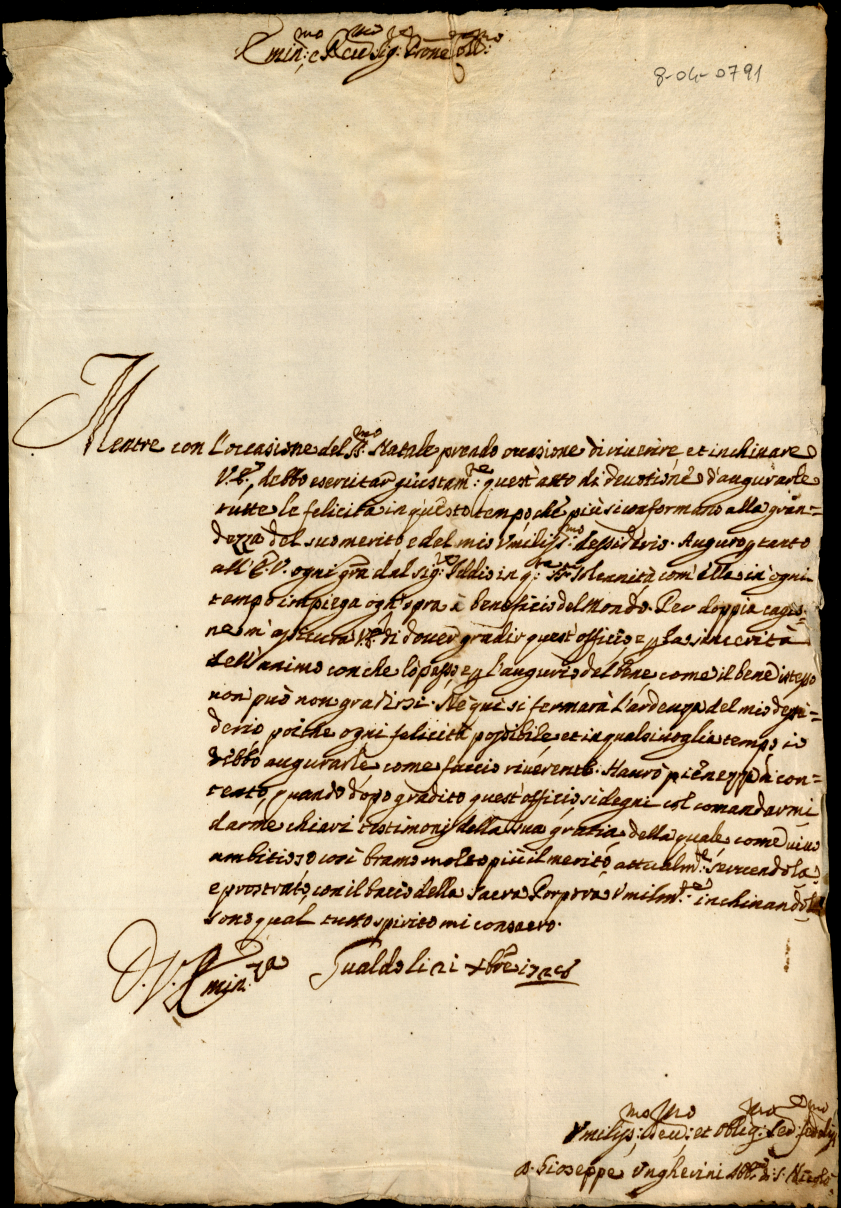 Emin:mo e Rev:mo Sig:re Prone Coll:mo
8-04-0791
Mentre con l'occasione del SS:mo Natale prendo occasione di riverire et inchinare
V.E., debbo esercitar giustam:te quest'atto di deuotione d'augurarle
tutte le felicità in questo tempo che più si conformano alla gran=
dezza del suo merito e del mio Vmiliss:mo dessiderio. Auguro tanto
all'E.V. ogni gra dal Sig:re Iddio in q: Solennità com'ella in ogni
tempo impiega ogn'opra à beneficio del Mondo. Per doppia cagio=
ne m'assicura V.E. di dover gradir quest'officio e la sincerità
dell'animo con che lo passo e l'augurio del bene come il bene istesso
non può non gradirsi. Nè qui si fermarà l'ardenza del mio dessi=
derio poiche ogni felicità possibile et in qualsivoglia tempo io
debbo augurarle come faccio riverente. Haurò pienezza di con=
tento, quando dopo gradito quest'officio si degni col comandarmi
darme chiari testimonij della sua gratia, della quale come vivo
ambitioso così bramo molto più il merito, attualm:te servendola
e prostrato con il bacio della Sacra Porpora Vmilm:te inchinandola
sono qual tutto spirito mi consacro.
D.V. Emin:za Gualdo li 21 Xbre
Vmiliss:mo et Oblig:mo
D. Gioseppe Vngherini S. Nicolò